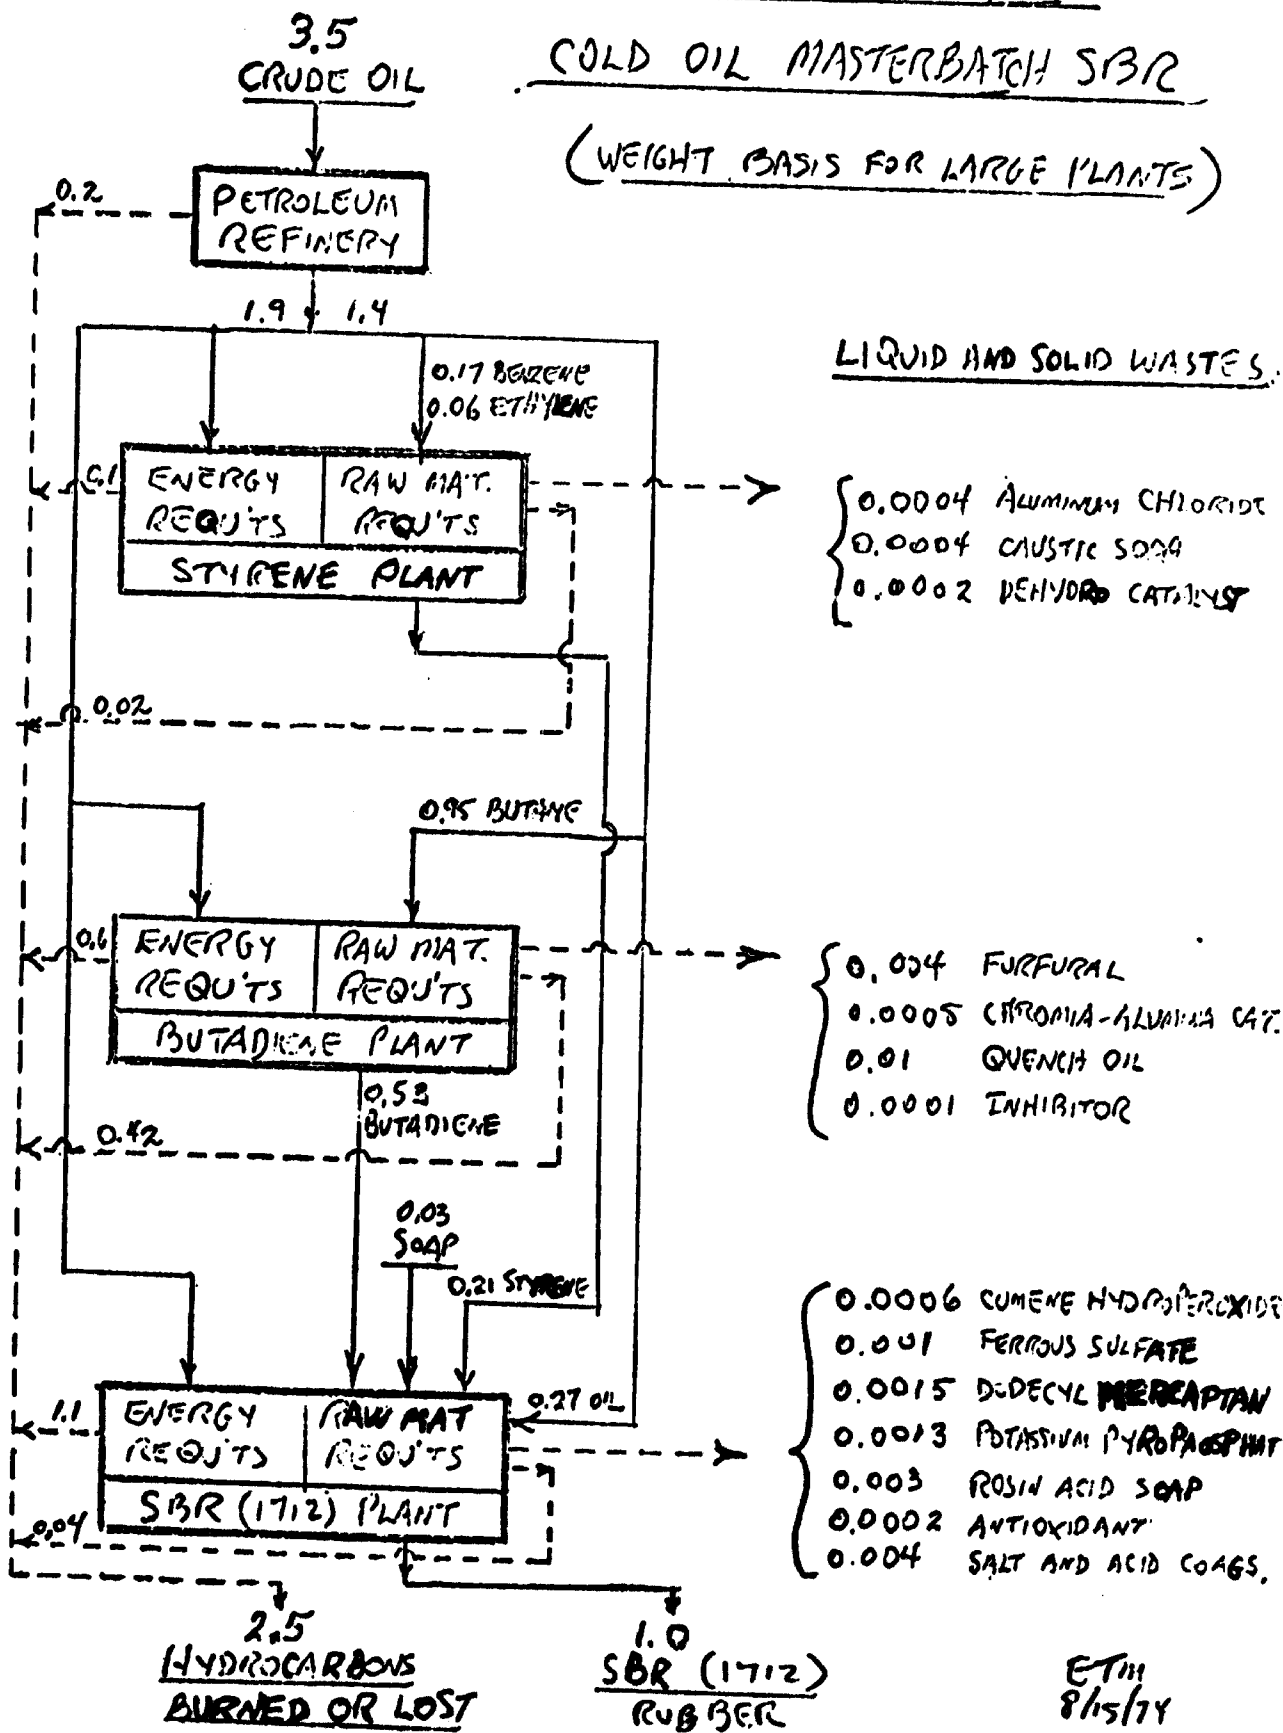 3.5
CRUDE OIL
COLD OIL MASTERBATCH SBR
(WEIGHT BASIS FOR LARGE PLANTS)
0.2
PETROLEUM
REFINERY
1.9
1.4
0.17 BENZENE
0.06 ETHYLENE
LIQUID AND SOLID WASTES.
0.1
ENERGY
REQU'TS
RAW MAT.
REQU'TS
STYRENE PLANT
0.0004 ALUMINUM CHLORIDE
0.0004 CAUSTIC SODA
0.0002 DEHYDRO CATALYST
0.02
0.95 BUTANE
0.6
ENERGY
REQU'TS
RAW MAT.
REQU'TS
BUTADIENE PLANT
0.004 FURFURAL
0.0005 CHROMIA-ALUMINA CAT.
0.01 QUENCH OIL
0.0001 INHIBITOR
0.53
BUTADIENE
0.42
0.03
SOAP
0.21 STYRENE
0.27 OIL
1.1
ENERGY
REQU'TS
RAW MAT
REQU'TS
SBR (1712) PLANT
0.04
0.0006 CUMENE HYDROPEROXIDE
0.001 FERROUS SULFATE
0.0015 DODECYL MERCAPTAN
0.0013 POTASSIUM PYROPHOSPHAT
0.003 ROSIN ACID SOAP
0.0002 ANTIOXIDANT
0.004 SALT AND ACID COAGS.
2.5
HYDROCARBONS
BURNED OR LOST
1.0
SBR (1712)
RUBBER
ETM
8/15/74